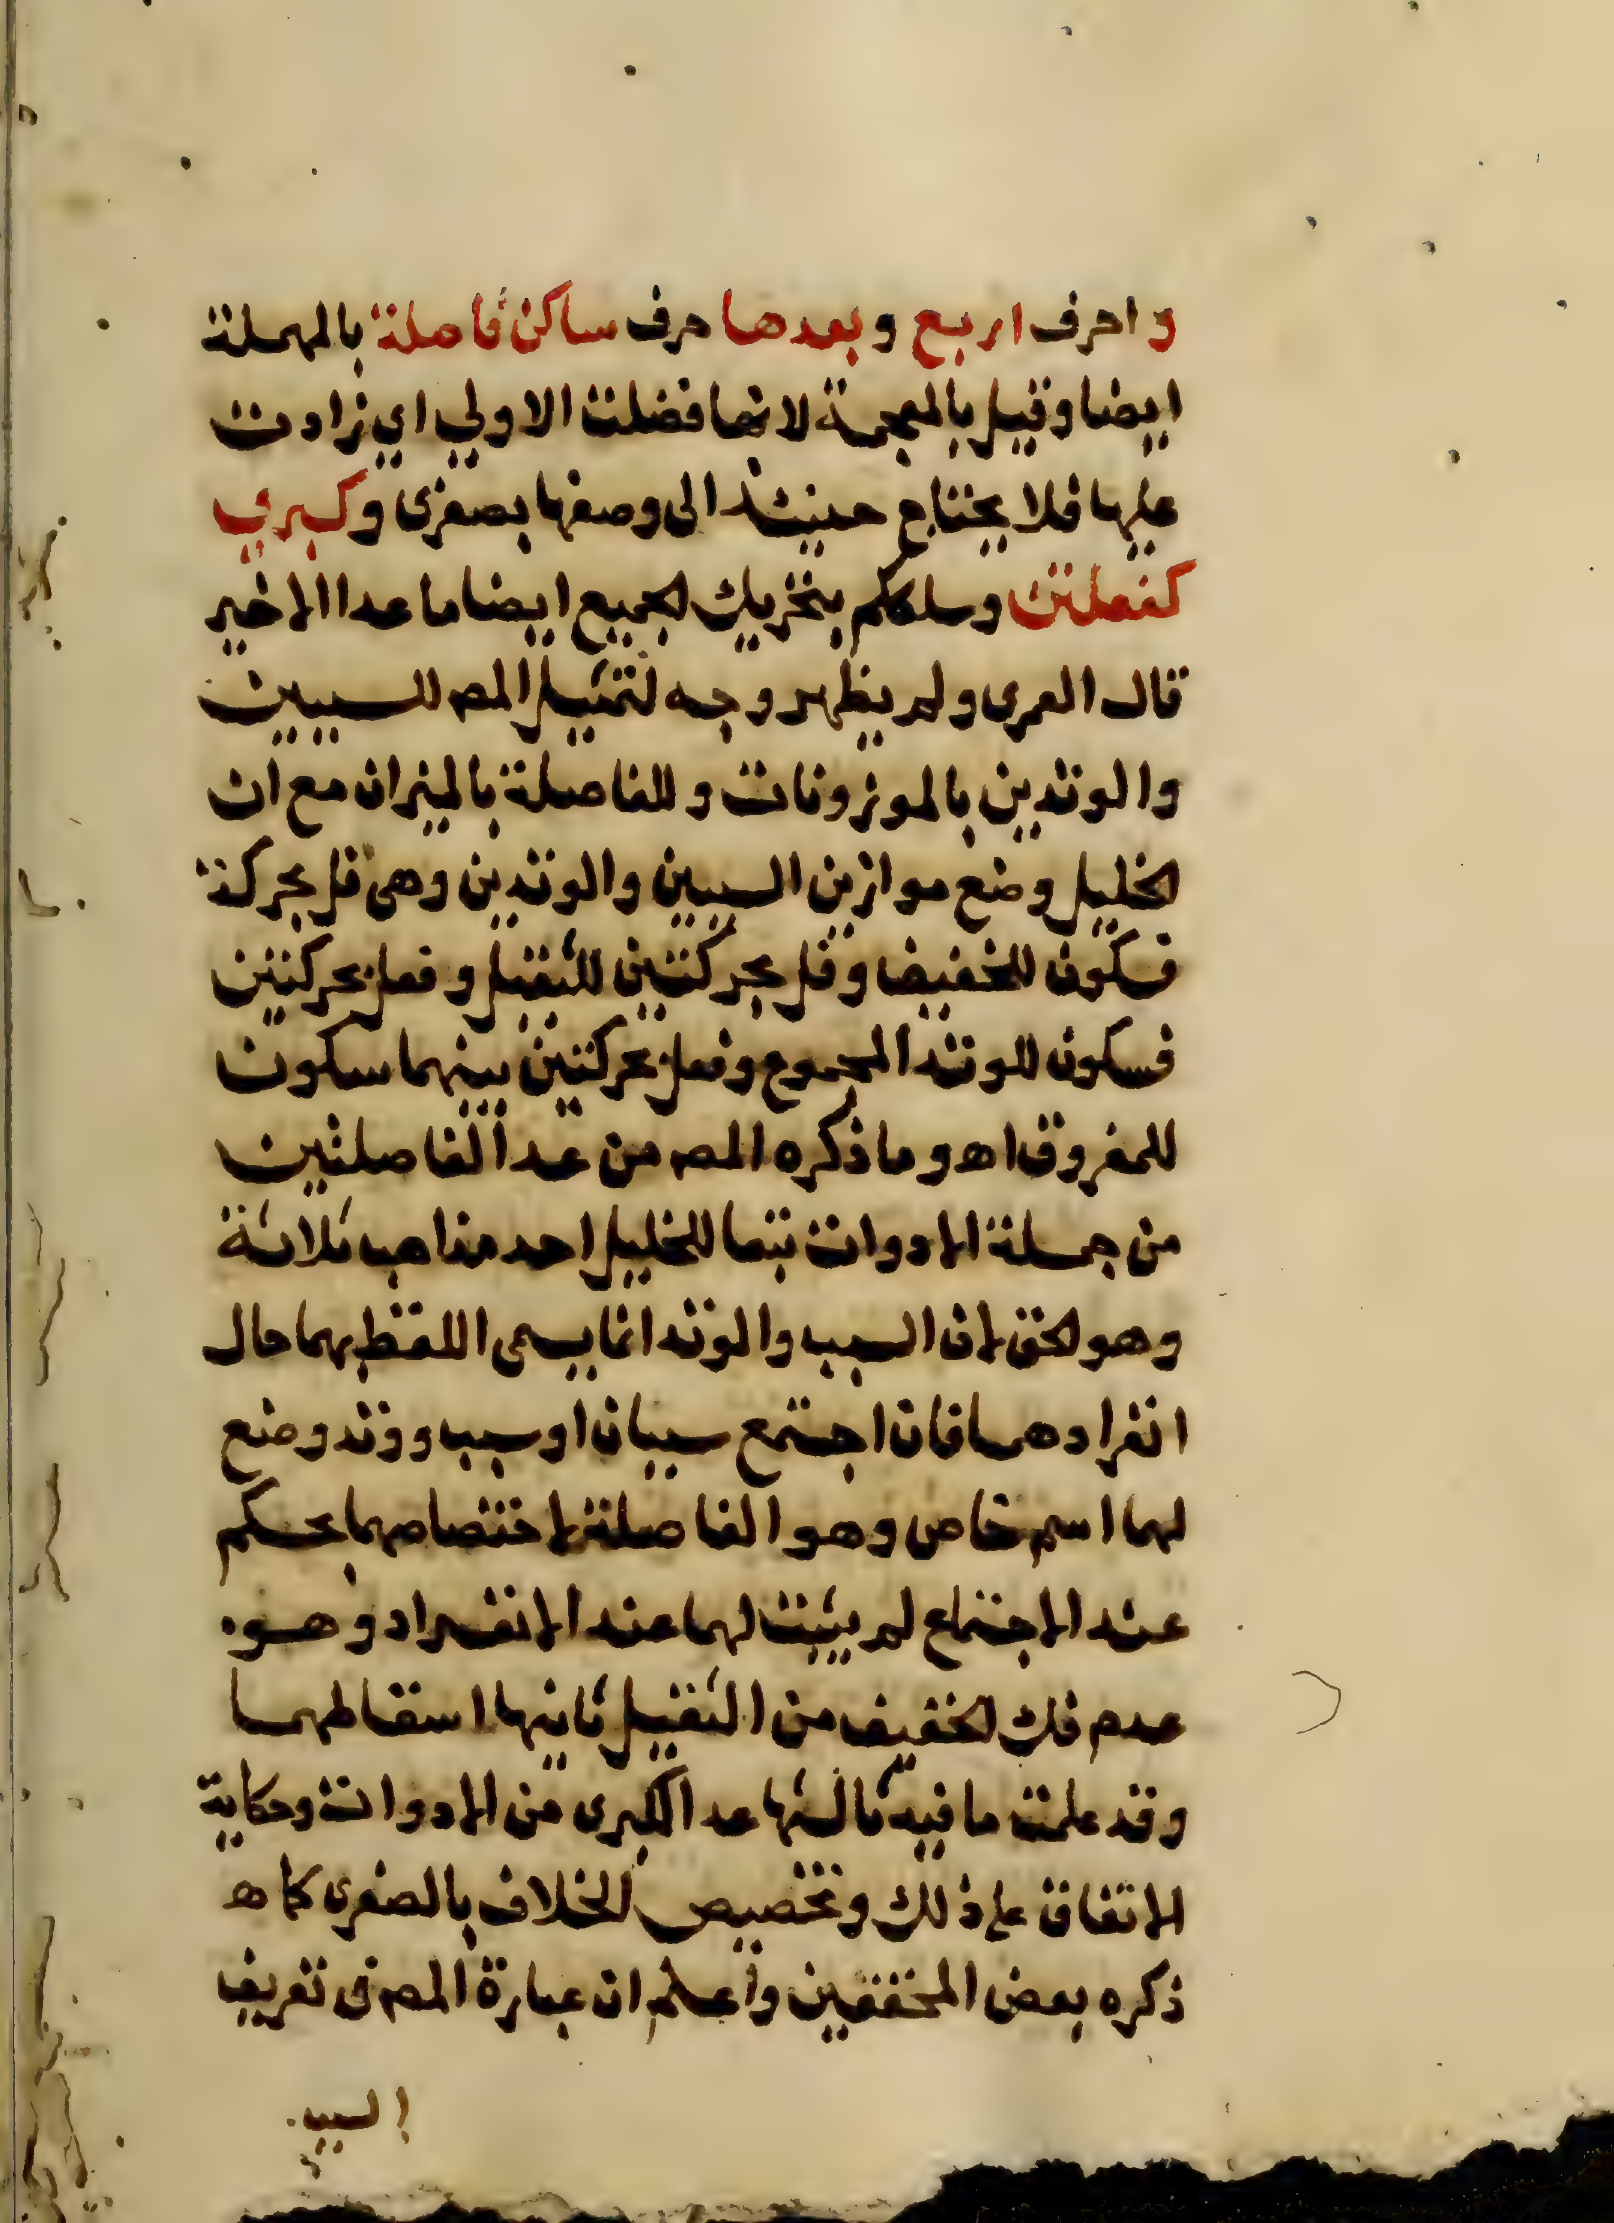 و احرف اربع وبعدها حرف ساكن فاصلة بالمهملة
ايضا وقيل بالمعجمة لانها فضلت الاولي اي زادت
عليها فلا يحتاج حينئذ الى وصفها بصغرى وكبري
كفعلتن وسلمكم بتحريك الجميع ايضا ما عدا الاخير
قال العمرى ولم يظهر وجه لتمثيل المص للسببين
والوتدين بالموزونات وللفاصلة بالميزان مع ان
الخليل وضع موازين السببين والوتدين وهى فل بحركة
فسكون للخفيف وفل بحركتين للثقيل وفعل بحركتين
فسكون للوتد المجموع وفعل بحركتين بينهما سكون
للمفروق اه وما ذكره المص من عد الفاصلتين
من جملة الادوات تبعا للخليل احد مذاهب ثلاثة
وهو الحق لان السبب والوتد انما يسمى اللفظ بهما حال
انفرادهما فان اجتمع سببان او سبب ووتد وضع
لهما اسم خاص وهو الفاصلة لاختصاصهما بحكم
عند الاجتماع لم يثبت لهما عند الانفراد وهو
عدم فك الخفيف من الثقيل ثانيها اسقاطهما
وقد علمت ما فيه ثالثها عد الكبرى من الادوات وحكاية
الاتفاق على ذلك وتخصيص الخلاف بالصغرى كما ه
ذكره بعض المحققين واعلم ان عبارة المص فى تعريف
السبب